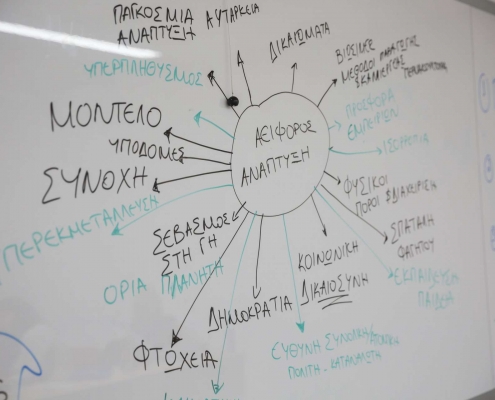 ΠΑΓΚΟΣΜΙΑ
ΑΝΑΠΤΥΞΗ
ΑΥΤΑΡΚΕΙΑ
ΔΙΚΑΙΩΜΑΤΑ
ΒΙΩΣΙΜΕΣ
ΜΕΘΟΔΟΙ ΠΑΡΑΓΩΓΗΣ
ΥΠΕΡΠΛΗΘΥΣΜΟΣ
ΜΟΝΤΕΛΟ
ΥΠΟΔΟΜΕΣ
ΣΥΝΟΧΗ
ΠΕΡΕΚΜΕΤΑΛΛΕΥΣΗ
ΑΕΙΦΟΡΟΣ
ΑΝΑΠΤΥΞΗ
ΠΡΟΣΦΟΡΑ
ΕΜΠΕΙΡΙΩΝ
ΙΣΟΡΡΟΠΙΑ
ΦΥΣΙΚΟΙ
ΠΟΡΟΙ & ΔΙΑΧΕΙΡΙΣΗ
ΣΠΑΤΑΛΗ
ΦΑΓΗΤΟΥ
ΕΚΠΑΙΔΕΥΣΗ
ΠΑΙΔΕΙΑ
ΣΕΒΑΣΜΟΣ
ΣΤΗ ΓΗ
ΟΡΙΑ ΠΛΑΝΗΤΗ
ΚΟΙΝΩΝΙΚΗ
ΔΙΚΑΙΟΣΥΝΗ
ΔΗΜΟΚΡΑΤΙΑ
ΦΤΩΧΕΙΑ
ΕΥΘΥΝΗ ΣΥΝΟΛΙΚΗ/ΑΤΟΜΙΚΗ
ΠΟΛΙΤΗ - ΚΑΤΑΝΑΛΩΤΗ